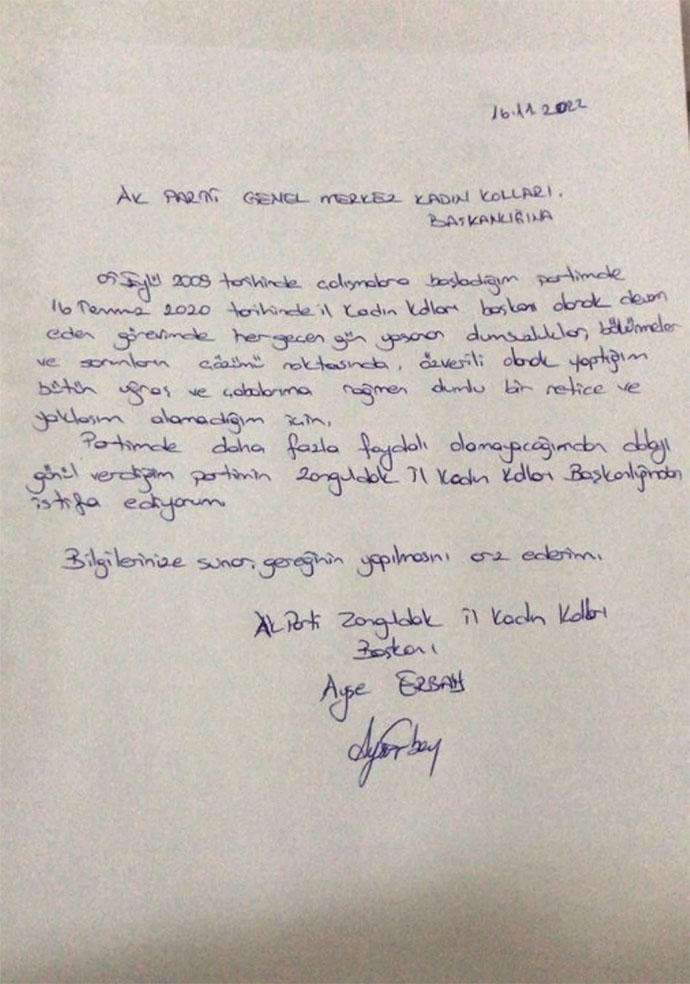 16.11.2022
AK PARTİ GENEL MERKEZ KADIN KOLLARI
BAŞKANLIĞINA
Eylül 2009 tarihinde çalışmalara başladığım partimde
16 Temmuz 2020 tarihinde il Kadın Kolları başkanı olarak devam
eden görevimde her geçen gün yaşanan olumsuzluklar, bölünmeler
ve sorunların çözümü noktasında, özverili olarak yaptığım
bütün uğraş ve çabalarıma rağmen olumlu bir netice ve
yaklaşım alamadığım için,
Partimde daha fazla faydalı olamayacağımdan dolayı
gönül verdiğim partimin Zonguldak İl Kadın Kolları Başkanlığından
istifa ediyorum.
Bilgilerinize sunar, gereğinin yapılmasını arz ederim.
AK Parti Zonguldak il Kadın Kolları
Başkanı
Ayşe ERBAY